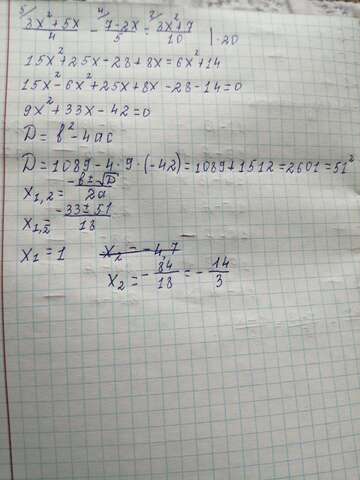 5/ 4/ 2/
(3x²+5x)/4 - (7-2x)/5 = (3x²+7)/10 |·20
15x²+25x-28+8x=6x²+14
15x²-6x²+25x+8x-28-14=0
9x²+33x-42=0
D=b²-4ac
D=1089-4·9·(-42)=1089+1512=2601=51²
x₁,₂=(-b±√D)/2a
x₁,₂=(-33±51)/18
x₁=1 x₂=-4,7
x₂=-84/18=-14/3